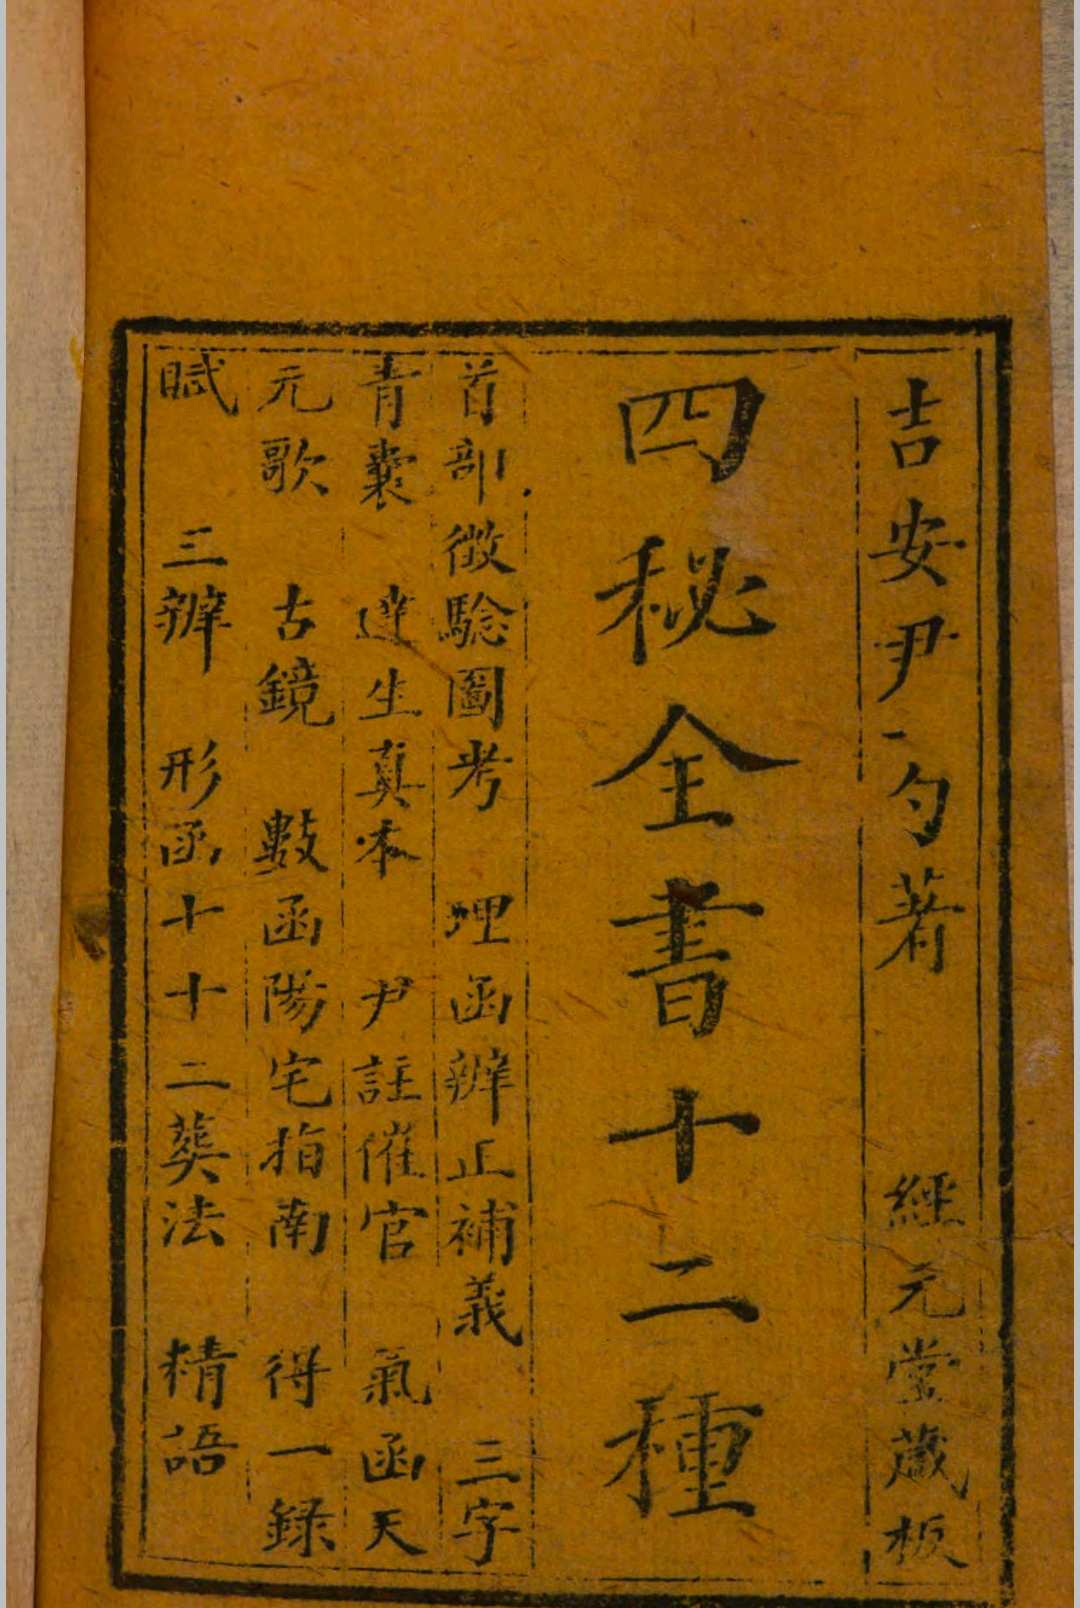 吉安尹一勺著　經元堂藏板
四秘全書十二種
首部徴驗圖考　理函辨正補義　三字
青囊　達生真本　尹註催官　氣函天
元歌　古鏡　數函陽宅指南　得一録
賦　三辨　形函十十二葬法　精語